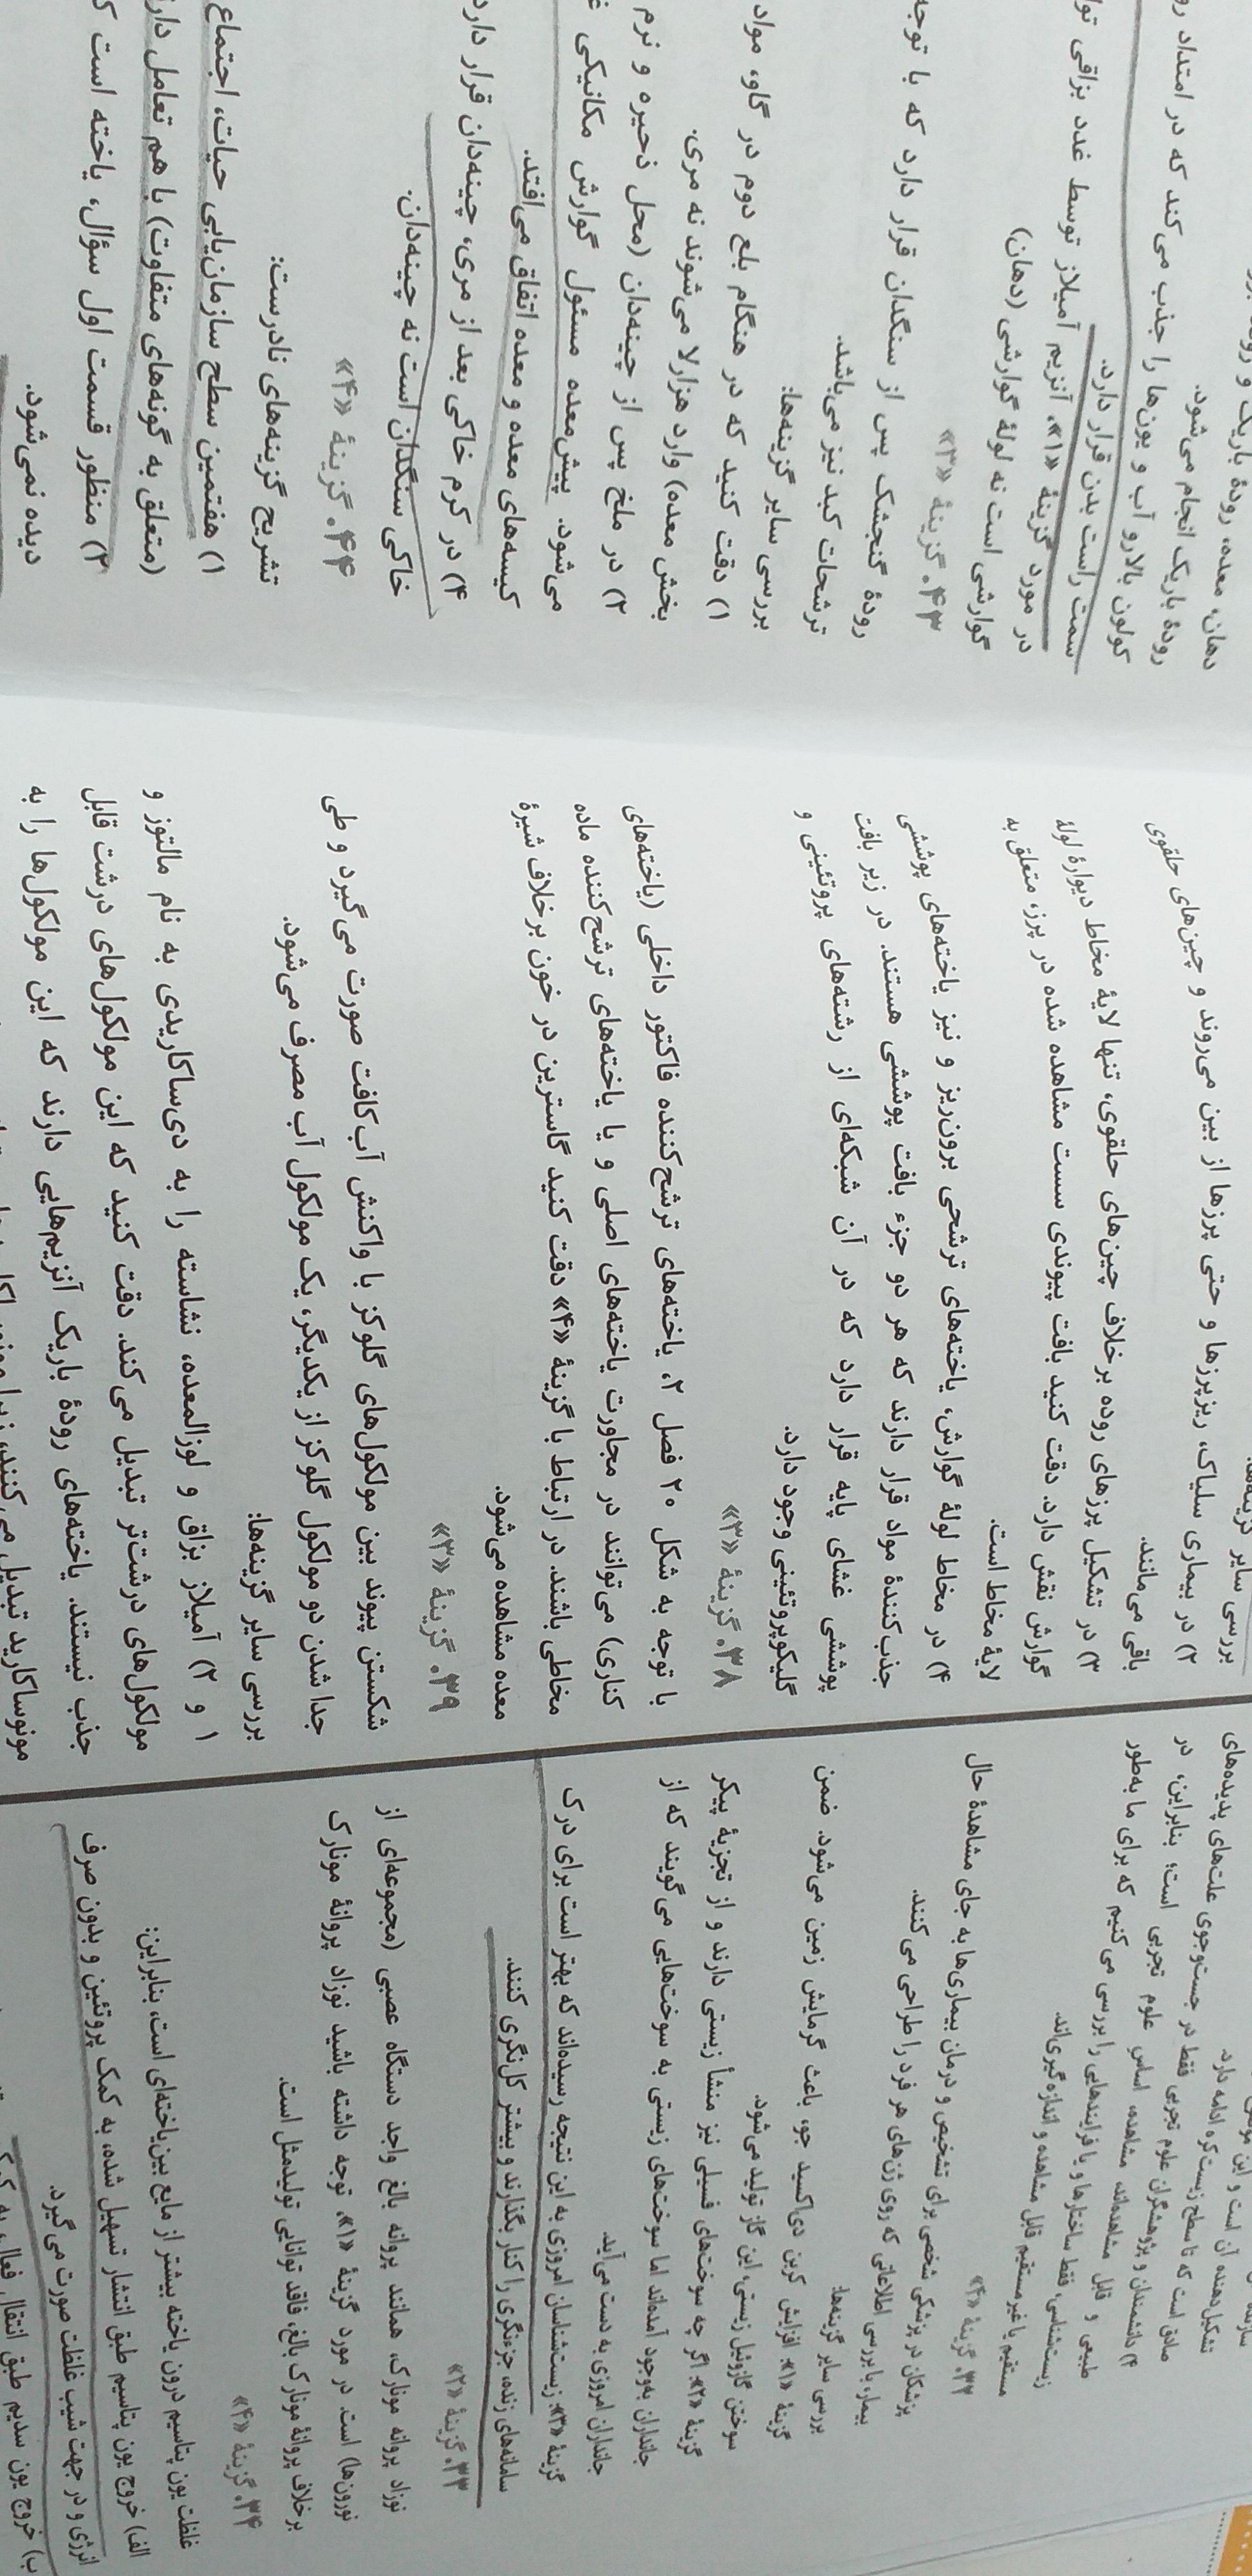 سازنده
تشکیل‌دهنده آن است و این
صادق است که تا سطح زیست‌کره ادامه دارد.
۴) دانشمندان و پژوهشگران علوم تجربی فقط در جست‌وجوی علت‌های پدیده‌های
طبیعی و قابل مشاهده‌اند. مشاهده، اساس علوم تجربی است؛ بنابراین، در
زیست‌شناسی، فقط ساختارها و یا فرایندهایی را بررسی می‌کنیم که برای ما به‌طور
مستقیم یا غیرمستقیم قابل مشاهده و اندازه‌گیری‌اند.
۳۲. گزینهٔ «۴»
پزشکان در پزشکی شخصی برای تشخیص و درمان بیماری‌ها به جای مشاهدهٔ حال
بیمار، با بررسی اطلاعاتی که روی ژن‌های هر فرد را طراحی می‌کنند.
بررسی سایر گزینه‌ها:
گزینهٔ «۱»: افزایش کربن دی‌اکسید جو، باعث گرمایش زمین می‌شود. ضمن
سوختن گازوئیل زیستی، این گاز تولید می‌شود.
گزینهٔ «۲»: اگر چه سوخت‌های فسیلی نیز منشأ زیستی دارند و از تجزیهٔ پیکر
جانداران به‌وجود آمده‌اند اما سوخت‌های زیستی به سوخت‌هایی می‌گویند که از
جانداران امروزی به دست می‌آید.
گزینهٔ «۳»: زیست‌شناسان امروزی به این نتیجه رسیده‌اند که بهتر است برای درک
سامانه‌های زنده، جزءنگری را کنار بگذارند و بیشتر کل‌نگری کنند.
۳۳. گزینهٔ «۲»
نوزاد پروانه مونارک، همانند پروانه بالغ واجد دستگاه عصبی (مجموعه‌ای از
نورون‌ها) است. در مورد گزینهٔ «۱»، توجه داشته باشید نوزاد پروانهٔ مونارک
برخلاف پروانهٔ مونارک بالغ، فاقد توانایی تولیدمثل است.
۳۴. گزینهٔ «۴»
غلظت یون پتاسیم درون یاخته بیشتر از مایع بین‌یاخته‌ای است، بنابراین:
الف) خروج یون پتاسیم طبق انتشار تسهیل شده، به کمک پروتئین و بدون صرف
انرژی و در جهت شیب غلظت صورت می‌گیرد.
ب) خروج یون سدیم طبق انتقال فعال، به کمک
بررسی سایر گزینه‌ها:
۲) در بیماری سلیاک، ریزپرزها و حتی پرزها از بین می‌روند و چین‌های حلقوی
باقی می‌مانند.
۳) در تشکیل پرزهای روده برخلاف چین‌های حلقوی، تنها لایهٔ مخاط دیوارهٔ لولهٔ
گوارش نقش دارد. دقت کنید بافت پیوندی سست مشاهده شده در پرز، متعلق به
لایهٔ مخاط است.
۴) در مخاط لولهٔ گوارش، یاخته‌های ترشحی برون‌ریز و نیز یاخته‌های پوششی
جذب‌کنندهٔ مواد قرار دارند که هر دو جزء بافت پوششی هستند. در زیر بافت
پوششی غشای پایه قرار دارد که در آن شبکه‌ای از رشته‌های پروتئینی و
گلیکوپروتئینی وجود دارد.
۳۸. گزینهٔ «۳»
با توجه به شکل ۲۰ فصل ۲، یاخته‌های ترشح‌کننده فاکتور داخلی (یاخته‌های
کناری) می‌توانند در مجاورت یاخته‌های اصلی و یا یاخته‌های ترشح‌کننده ماده
مخاطی باشند. در ارتباط با گزینهٔ «۴» دقت کنید گاسترین در خون برخلاف شیرهٔ
معده مشاهده می‌شود.
۳۹. گزینهٔ «۳»
شکستن پیوند بین مولکول‌های گلوکز با واکنش آب‌کافت صورت می‌گیرد و طی
جدا شدن دو مولکول گلوکز از یکدیگر، یک مولکول آب مصرف می‌شود.
بررسی سایر گزینه‌ها:
۱ و ۲) آمیلاز بزاق و لوزالمعده، نشاسته را به دی‌ساکاریدی به نام مالتوز و
مولکول‌های درشت‌تر تبدیل می‌کند. دقت کنید که این مولکول‌های درشت قابل
جذب نیستند. یاخته‌های رودهٔ باریک آنزیم‌هایی دارند که این مولکول‌ها را به
مونوساکارید تبدیل می‌کنند، زیرا
دهان، معده، رودهٔ باریک و
رودهٔ باریک انجام می‌شود.
کولون بالارو آب و یون‌ها را جذب می‌کند که در امتداد
سمت راست بدن قرار دارد.
در مورد گزینهٔ «۱»، آنزیم آمیلاز توسط غدد بزاقی
گوارشی است نه لولهٔ گوارشی (دهان)
۴۳. گزینهٔ «۳»
رودهٔ گنجشک پس از سنگدان قرار دارد که با توجه
ترشحات کبد نیز می‌باشد.
بررسی سایر گزینه‌ها:
۱) دقت کنید که در هنگام بلع دوم در گاو، مواد
بخش معده) وارد هزارلا می‌شوند نه مری.
۲) در ملخ پس از چینه‌دان (محل ذخیره و نرم
می‌شود. پیش‌معده مسئول گوارش مکانیکی
کیسه‌های معده و معده اتفاق می‌افتد.
۴) در کرم خاکی بعد از مری، چینه‌دان قرار دارد
خاکی سنگدان است نه چینه‌دان.
۴۴. گزینهٔ «۴»
تشریح گزینه‌های نادرست:
۱) هفتمین سطح سازمان‌یابی حیات، اجتماع
(متعلق به گونه‌های متفاوت) با هم تعامل
۲) منظور قسمت اول سؤال، یاخته است
دیده نمی‌شود.